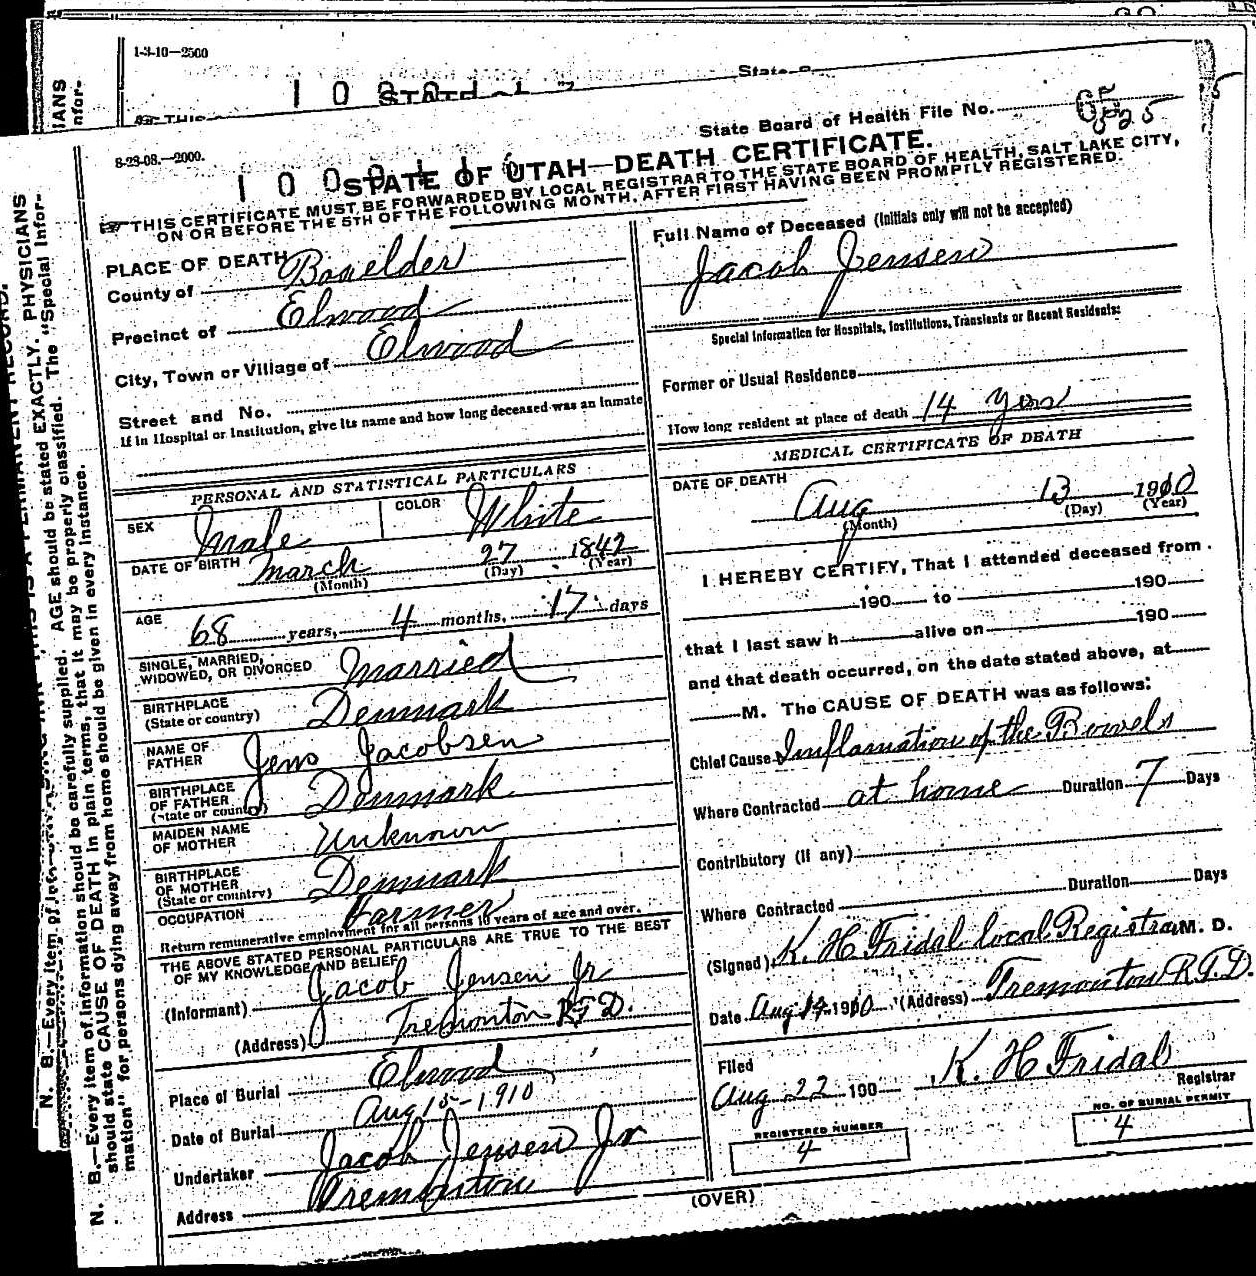 1-3-10—2500
8-23-08.—2000.
State Board of Health File No.
STATE OF UTAH—DEATH CERTIFICATE.
THIS CERTIFICATE MUST BE FORWARDED BY LOCAL REGISTRAR TO THE STATE BOARD OF HEALTH, SALT LAKE CITY,
ON OR BEFORE THE 5TH OF THE FOLLOWING MONTH, AFTER FIRST HAVING BEEN PROMPTLY REGISTERED.
PLACE OF DEATH
County of Boxelder
Precinct of Elwood
City, Town or Village of Elwood
Street and No.
If in Hospital or Institution, give its name and how long deceased was an Inmate
PERSONAL AND STATISTICAL PARTICULARS
SEX Male COLOR White
DATE OF BIRTH March 27 1842
(Month) (Day) (Year)
AGE 68 years, 4 months, 17 days
SINGLE, MARRIED,
WIDOWED, OR DIVORCED Married
BIRTHPLACE
(State or country) Denmark
NAME OF
FATHER Jens Jacobsen
BIRTHPLACE
OF FATHER
(State or country) Denmark
MAIDEN NAME
OF MOTHER Unknown
BIRTHPLACE
OF MOTHER
(State or country) Denmark
OCCUPATION Farmer
Return remunerative employment for all persons 10 years of age and over.
THE ABOVE STATED PERSONAL PARTICULARS ARE TRUE TO THE BEST
OF MY KNOWLEDGE AND BELIEF
(Informant) Jacob Jensen Jr
(Address) Tremonton R.F.D.
Place of Burial Elwood
Date of Burial Aug 15-1910
Undertaker Jacob Jensen Jr
Address Tremonton
Full Name of Deceased (Initials only will not be accepted)
Jacob Jensen
Special Information for Hospitals, Institutions, Transients or Recent Residents:
Former or Usual Residence
How long resident at place of death 14 years
MEDICAL CERTIFICATE OF DEATH
DATE OF DEATH
Aug 13 1910
(Month) (Day) (Year)
I HEREBY CERTIFY, That I attended deceased from
190 to 190
that I last saw h alive on 190
and that death occurred, on the date stated above, at
M. The CAUSE OF DEATH was as follows:
Chief Cause Inflamation of the Bowels
Where Contracted at home Duration 7 Days
Contributory (if any)
Duration Days
Where Contracted
(Signed) K. H Fridal local Registrar M. D.
Date Aug 14 1910 (Address) Tremonton R.F.D.
Filed
Aug 22 190 K. H Fridal
Registrar
REGISTERED NUMBER
4
NO. OF BURIAL PERMIT
4
(OVER)
N. B.—Every item of information should be carefully supplied. AGE should be stated EXACTLY. PHYSICIANS
should state CAUSE OF DEATH in plain terms, that it may be properly classified. The "Special Infor-
mation" for persons dying away from home should be given in every instance.